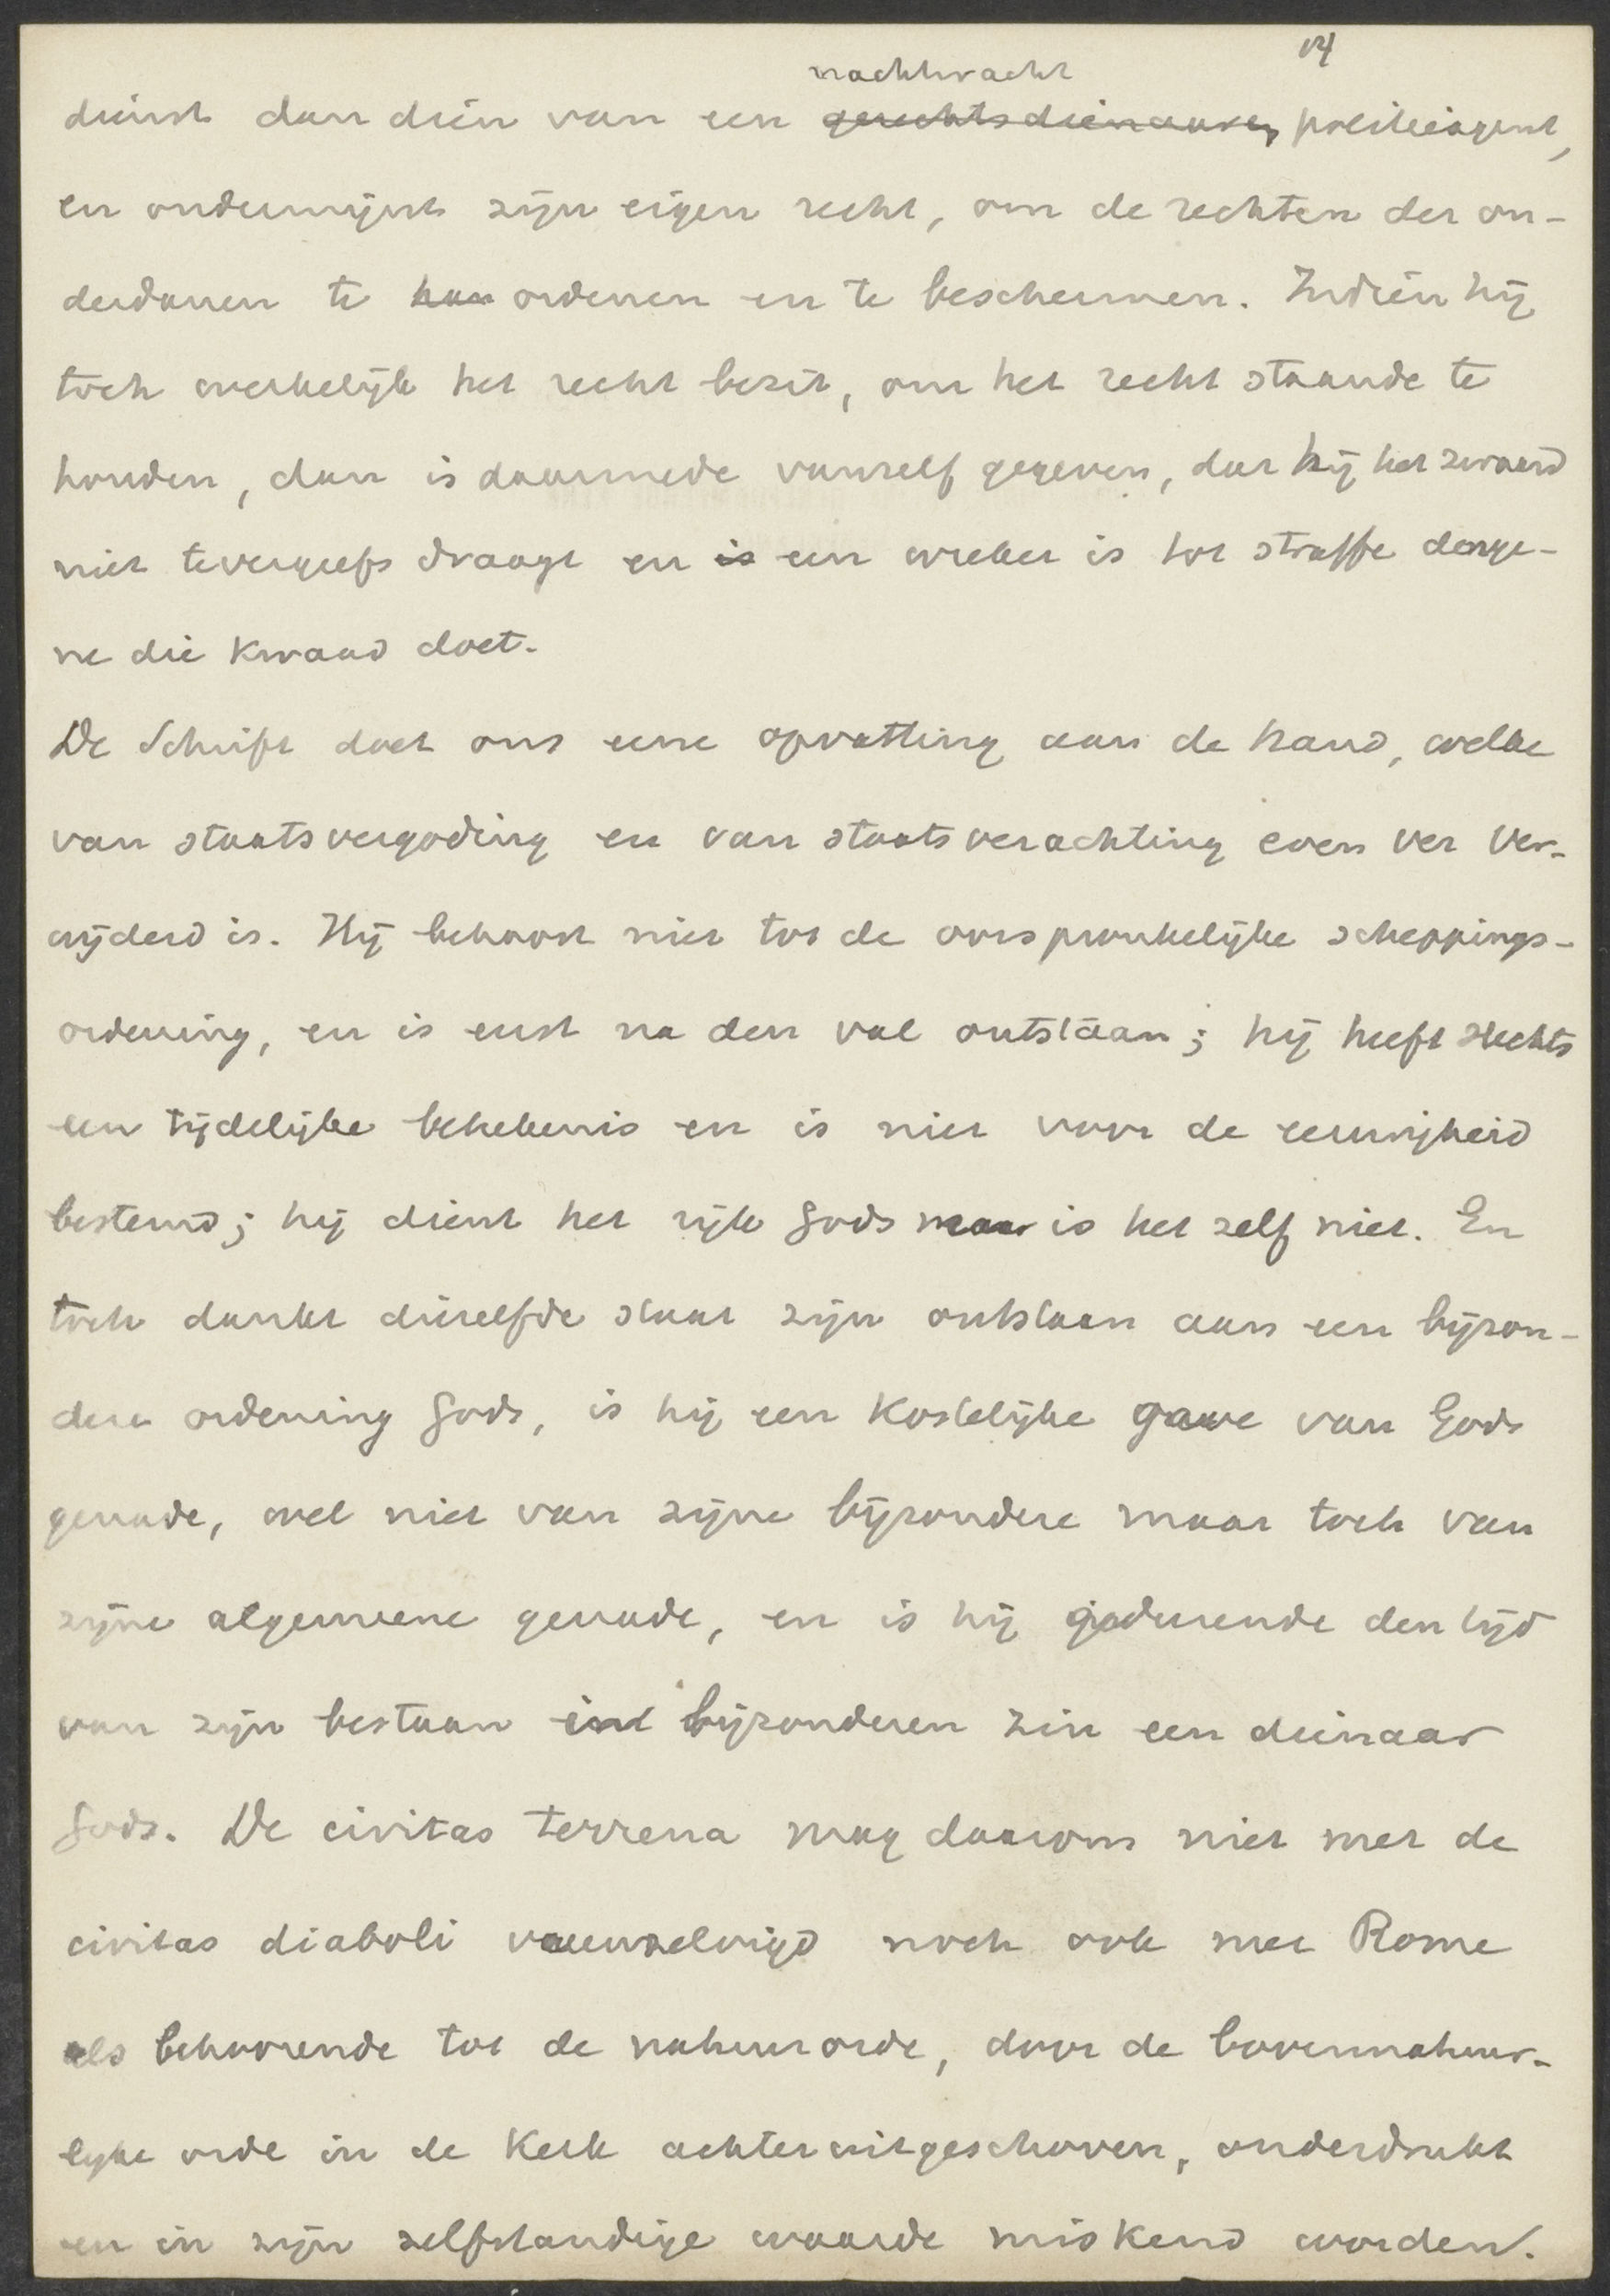 14
nachtwacht
dienst dan dien van een gerechtsdienaar, politieagent,
en ondermijnt zijn eigen recht, om de rechten der on-
derdanen te han ordenen en te beschermen. Indien hij
toch werkelijk het recht bezit, om het recht staande te
houden, dan is daarmede vanzelf gegeven, dat hij het zwaard
niet tevergeefs draagt en is een wreker is tot straffe denge-
ne die kwaad doet.
De Schrift doet ons eene opvatting aan de hand, welke
van staatsvergoding en van staatsverachting even ver ver-
wijderd is. Hij behoort niet tot de oorspronkelijke scheppings-
ordening, en is eerst na den val ontstaan; hij heeft slechts
een tijdelijke betekenis en is niet voor de eeuwigheid
bestemd; hij dient het rijk Gods maar is het zelf niet. En
toch dankt diezelfde staat zijn ontstaan aan een bijzon-
dere ordening Gods, is hij een kostelijke gave van Gods
genade, wel niet van zijne bijzondere maar toch van
zijne algemeene genade, en is hij gedurende den tijd
van zijn bestaan in bijzonderen zin een dienaar
Gods. De civitas terrena mag daarom niet met de
civitas diaboli vereenzelvigd noch ook met Rome
als behoorende tot de natuurorde, door de bovennatuur-
lijke orde in de Kerk achteruitgeschoven, onderdrukt
en in zijn zelfstandige waarde miskend worden.